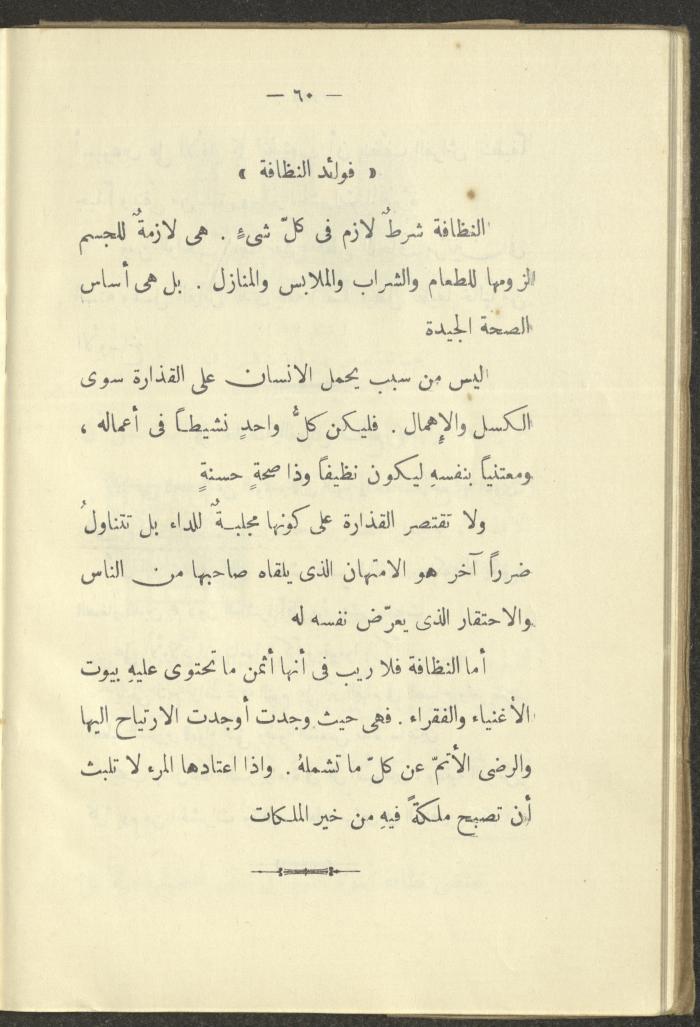 — ٦٠ —
« فوائد النظافة »
النظافة شرطٌ لازم فى كلّ شىءٍ . هى لازمةٌ للجسم
لزومها للطعام والشراب والملابس والمنازل . بل هى أساس
الصحة الجيدة
ليس من سبب يحمل الانسان على القذارة سوى
الكسل والإهمال . فليكن كلُّ واحدٍ نشيطاً فى أعماله ،
ومعتنياً بنفسهِ ليكون نظيفاً وذا صحةٍ حسنةٍ
ولا تقتصر القذارة على كونها مجلبةٌ للداء بل تتناولُ
ضرراً آخر هو الامتهان الذى يلقاه صاحبها من الناس
والاحتقار الذى يعرّض نفسه له
أما النظافة فلا ريب فى أنها أثمن ما تحتوى عليهِ بيوت
الأغنياء والفقراء . فهى حيث وجدت أوجدت الارتياح اليها
والرضى الأتمّ عن كلّ ما تشملهُ . واذا اعتادها المرء لا تلبث
أن تصبح ملكةً فيهِ من خير الملكات